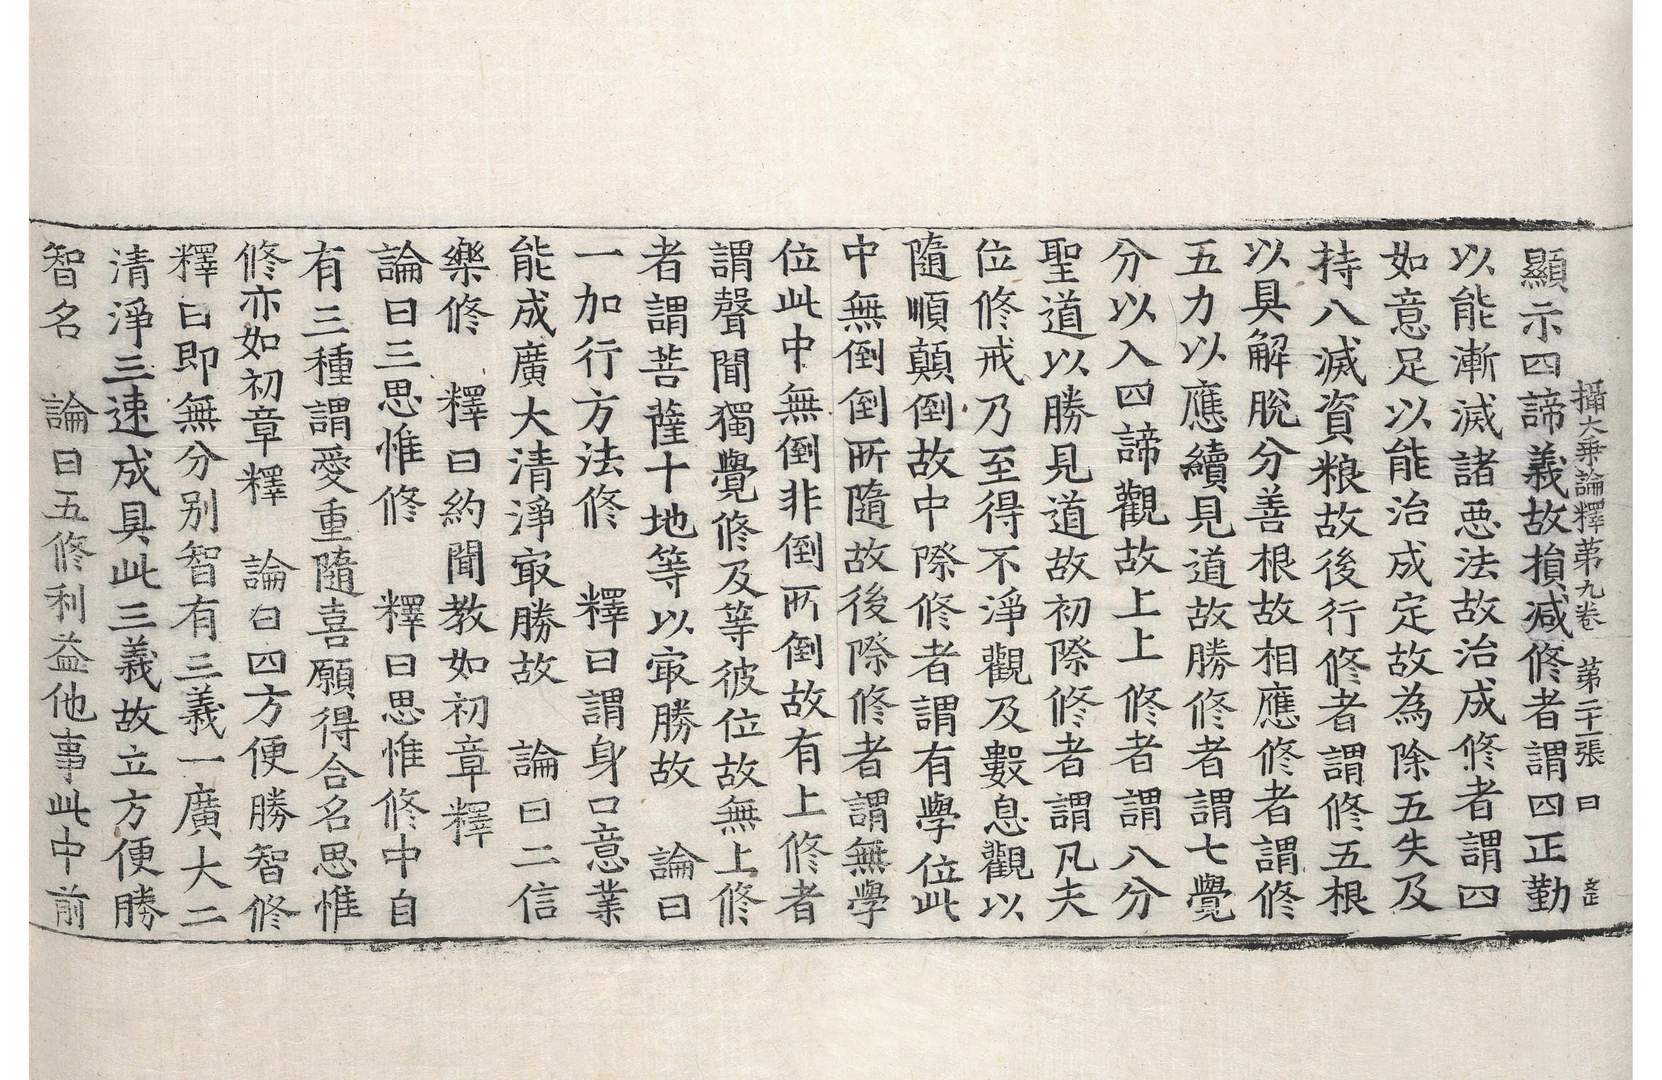 攝大乗論釋苐九卷　苐二十一張　曰
顯示四諦義故損减修者謂四正勤
以能漸滅諸恶法故治成修者謂四
如意足以能治成定故為除五失及
持八滅資粮故後行修者謂修五根
以具解脫分善根故相應修者謂修
五力以應續見道故勝修者謂七覺
分以入四諦觀故上上修者謂八分
聖道以勝見道故初際修者謂凡夫
位修戒乃至得不淨觀及數息觀以
隨順顛倒故中際修者謂有學位此
中無倒倒所隨故後際修者謂無學
位此中無倒非倒所倒故有上修者
謂聲聞獨覺修及等彼位故無上修
者謂菩薩十地等以㝡勝故　論曰
一加行方法修　釋曰謂身口意業
能成廣大清淨㝡勝故　論曰二信
樂修　釋曰約聞教如初章釋
論曰三思惟修　釋曰思惟修中自
有三種謂愛重隨喜願得合名思惟
修亦如初章釋　論曰四方便勝智修
釋曰即無分别智有三義一廣大二
清淨三速成具此三義故立方便勝
智名　論曰五修利益他事此中前